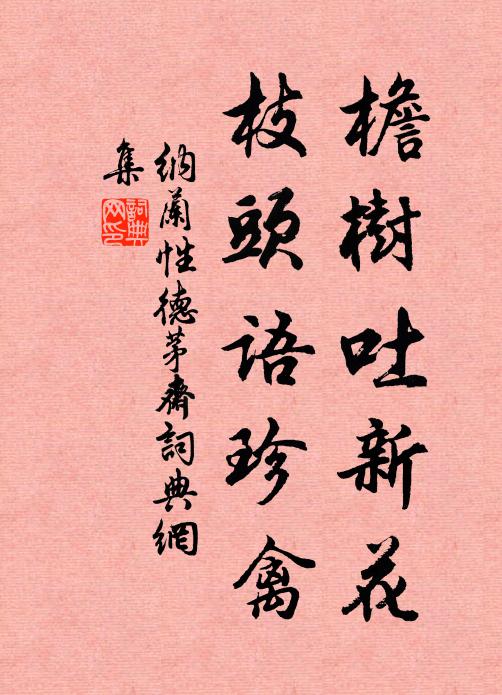 檐樹吐新花
枝頭語珍禽
納蘭性德茅齋詞典網
集
詞典
网印